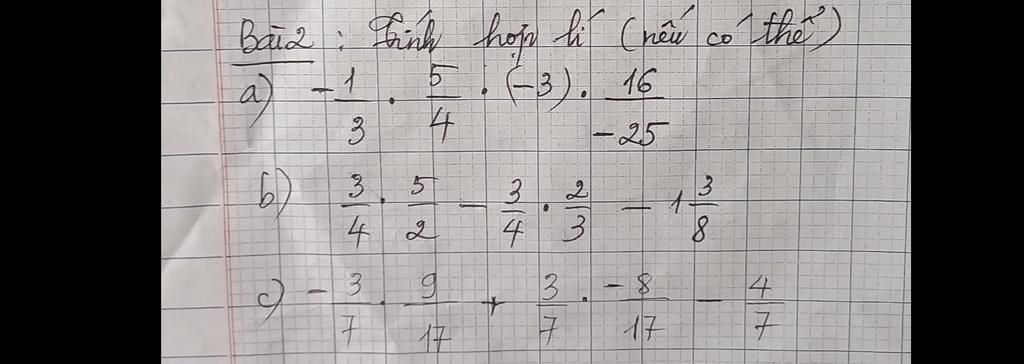 Bài 2 : Tính hợp lí (nếu có thể)
a) -1/3 . 5/4 . (-3) . 16/-25
b) 3/4 . 5/2 - 3/4 . 2/3 - 1 3/8
c) -3/7 . 9/17 + 3/7 . -8/17 - 4/7